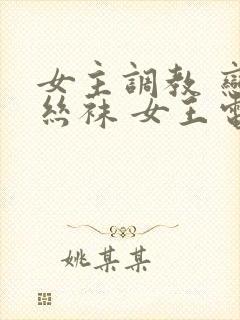 女主調教
絲袜 女王
姚某某